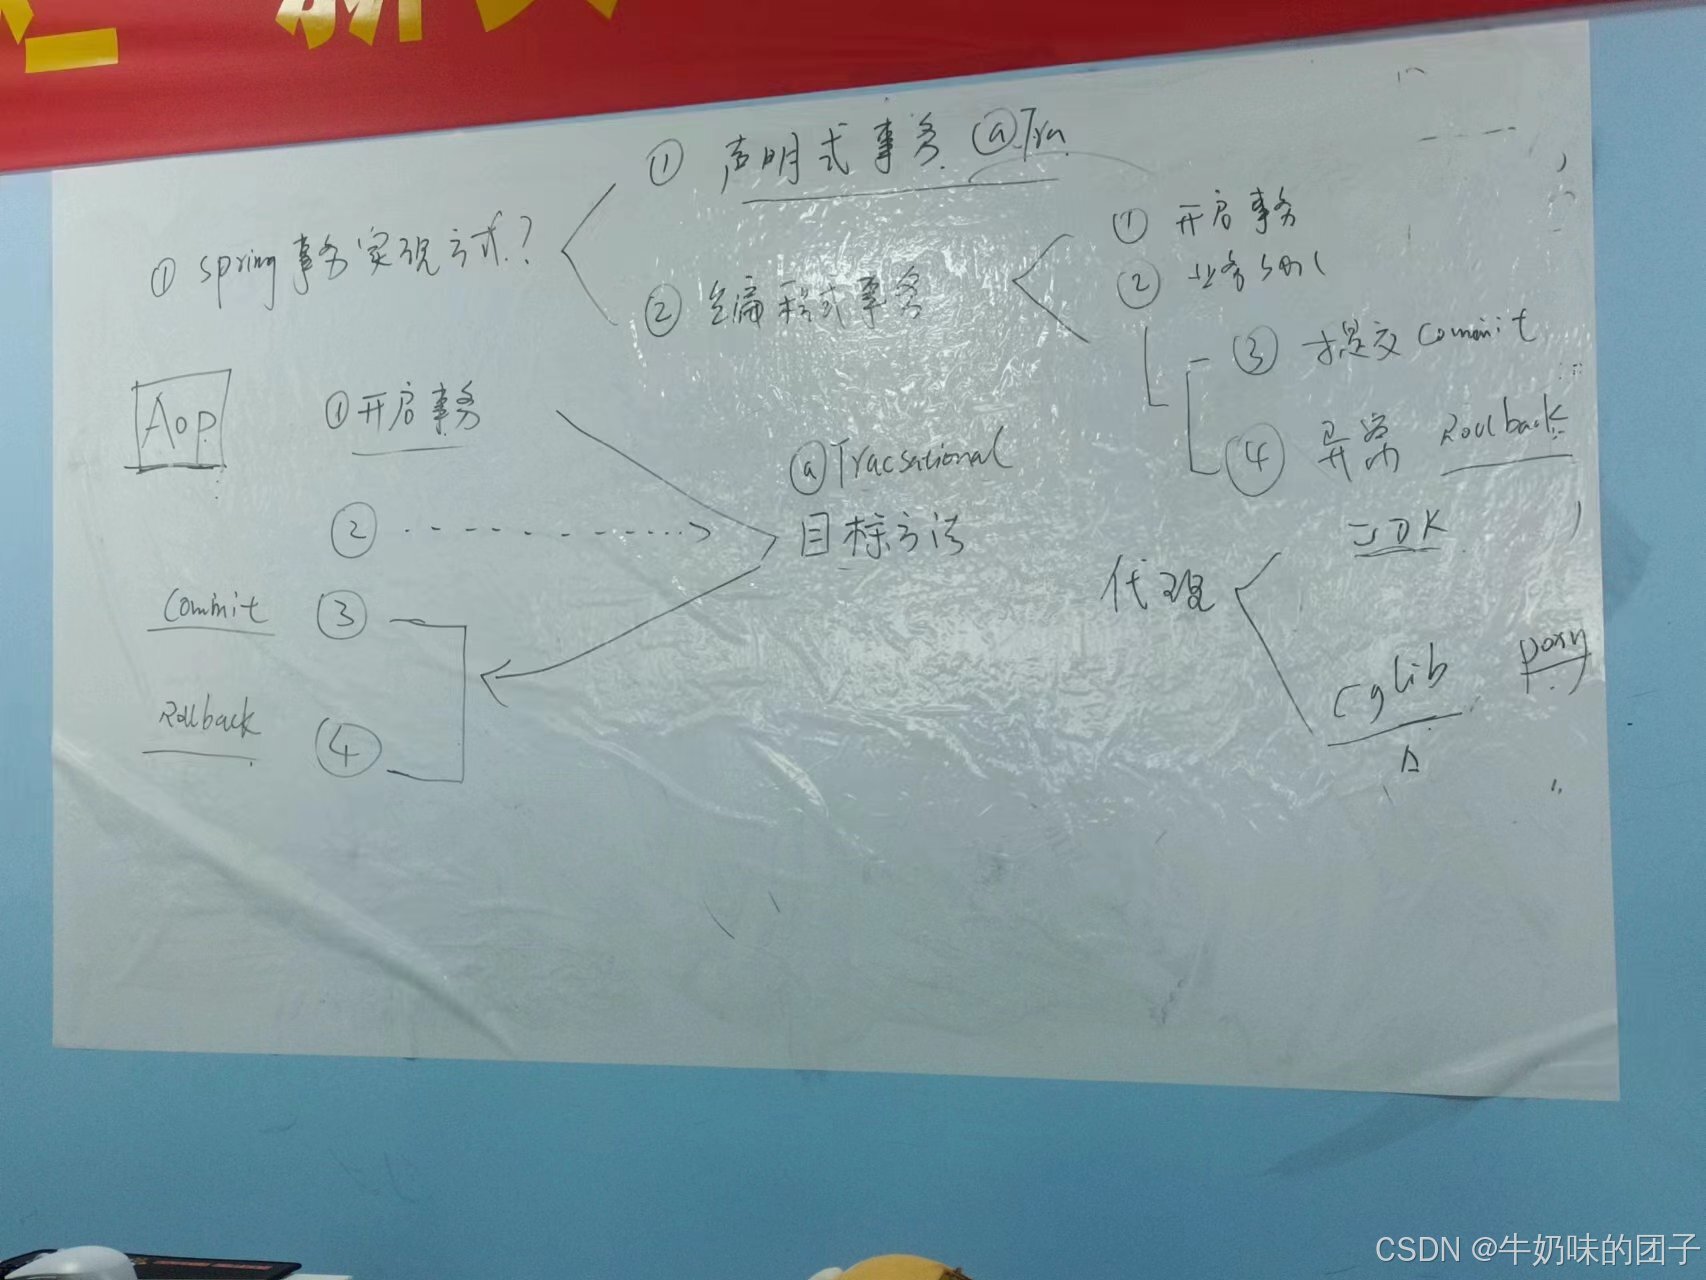 ① 声明式事务 @Tra
① spring事务实现方式?
② 编程式事务
① 开启事务
② 业务sql
③ 提交 commit
④ 异常 Rollback
Aop
① 开启事务
②
Commit ③
Rollback ④
@Tracsational
目标方法
代理
JDK
cglib
poxy
CSDN @牛奶味的团子